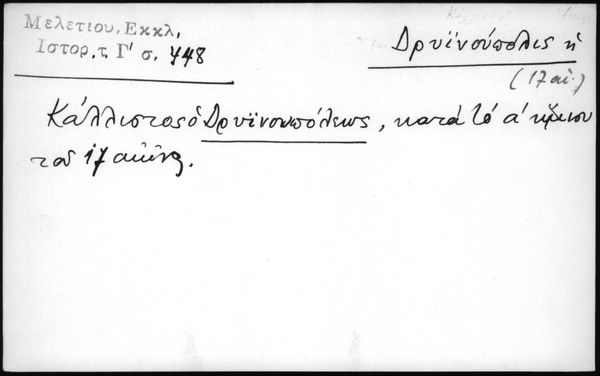 Μελετίου, Εκκλ,
Ιστορ, τ. Γ' σ. 448
Δρυϊνούπολις ἡ
(17 αἰ.)
Κάλλιστος ὁ Δρυϊνουπόλεως, κατὰ τὸ α' ἥμισυ
τοῦ 17 αἰῶνος.